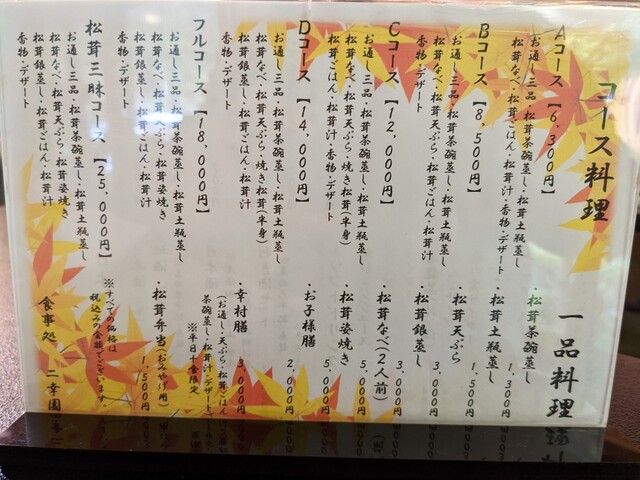 コース料理
Aコース 【6,300円】
お通し三品・松茸茶碗蒸し・松茸土瓶蒸し
松茸なべ・松茸ごはん・松茸汁・香物・デザート
Bコース 【8,500円】
お通し三品・松茸茶碗蒸し・松茸土瓶蒸し
松茸なべ・松茸天ぷら・松茸ごはん・松茸汁
香物・デザート
Cコース 【12,000円】
お通し三品・松茸茶碗蒸し・松茸土瓶蒸し
松茸なべ・松茸天ぷら・焼き松茸(半身)
松茸ごはん・松茸汁・香物・デザート
Dコース 【14,000円】
お通し三品・松茸茶碗蒸し・松茸土瓶蒸し
松茸なべ・松茸天ぷら・焼き松茸(半身)
松茸銀蒸し・松茸ごはん・松茸汁
香物・デザート
フルコース 【18,000円】
お通し三品・松茸茶碗蒸し・松茸土瓶蒸し
松茸なべ・松茸天ぷら・松茸姿焼き
松茸銀蒸し・松茸ごはん・松茸汁
香物・デザート
松茸三昧コース 【25,000円】
お通し三品・松茸茶碗蒸し・松茸土瓶蒸し
松茸なべ・松茸天ぷら・松茸姿焼き
松茸銀蒸し・松茸ごはん・松茸汁
香物・デザート
一品料理
・松茸茶碗蒸し 1,300円
・松茸土瓶蒸し 1,500円
・松茸天ぷら 3,000円
・松茸銀蒸し 3,000円
・松茸なべ(2人前) 5,000円
・松茸姿焼き 5,000円
・お子様膳 2,000円
・幸村膳 3,000円
(お通し・天ぷら・松茸ごはん
茶碗蒸し・松茸汁・デザート)
※平日十食限定
・松茸弁当(おみやげ用) 1,500円
※すべての価格は
税込みの金額でございます。
食事処 二幸園